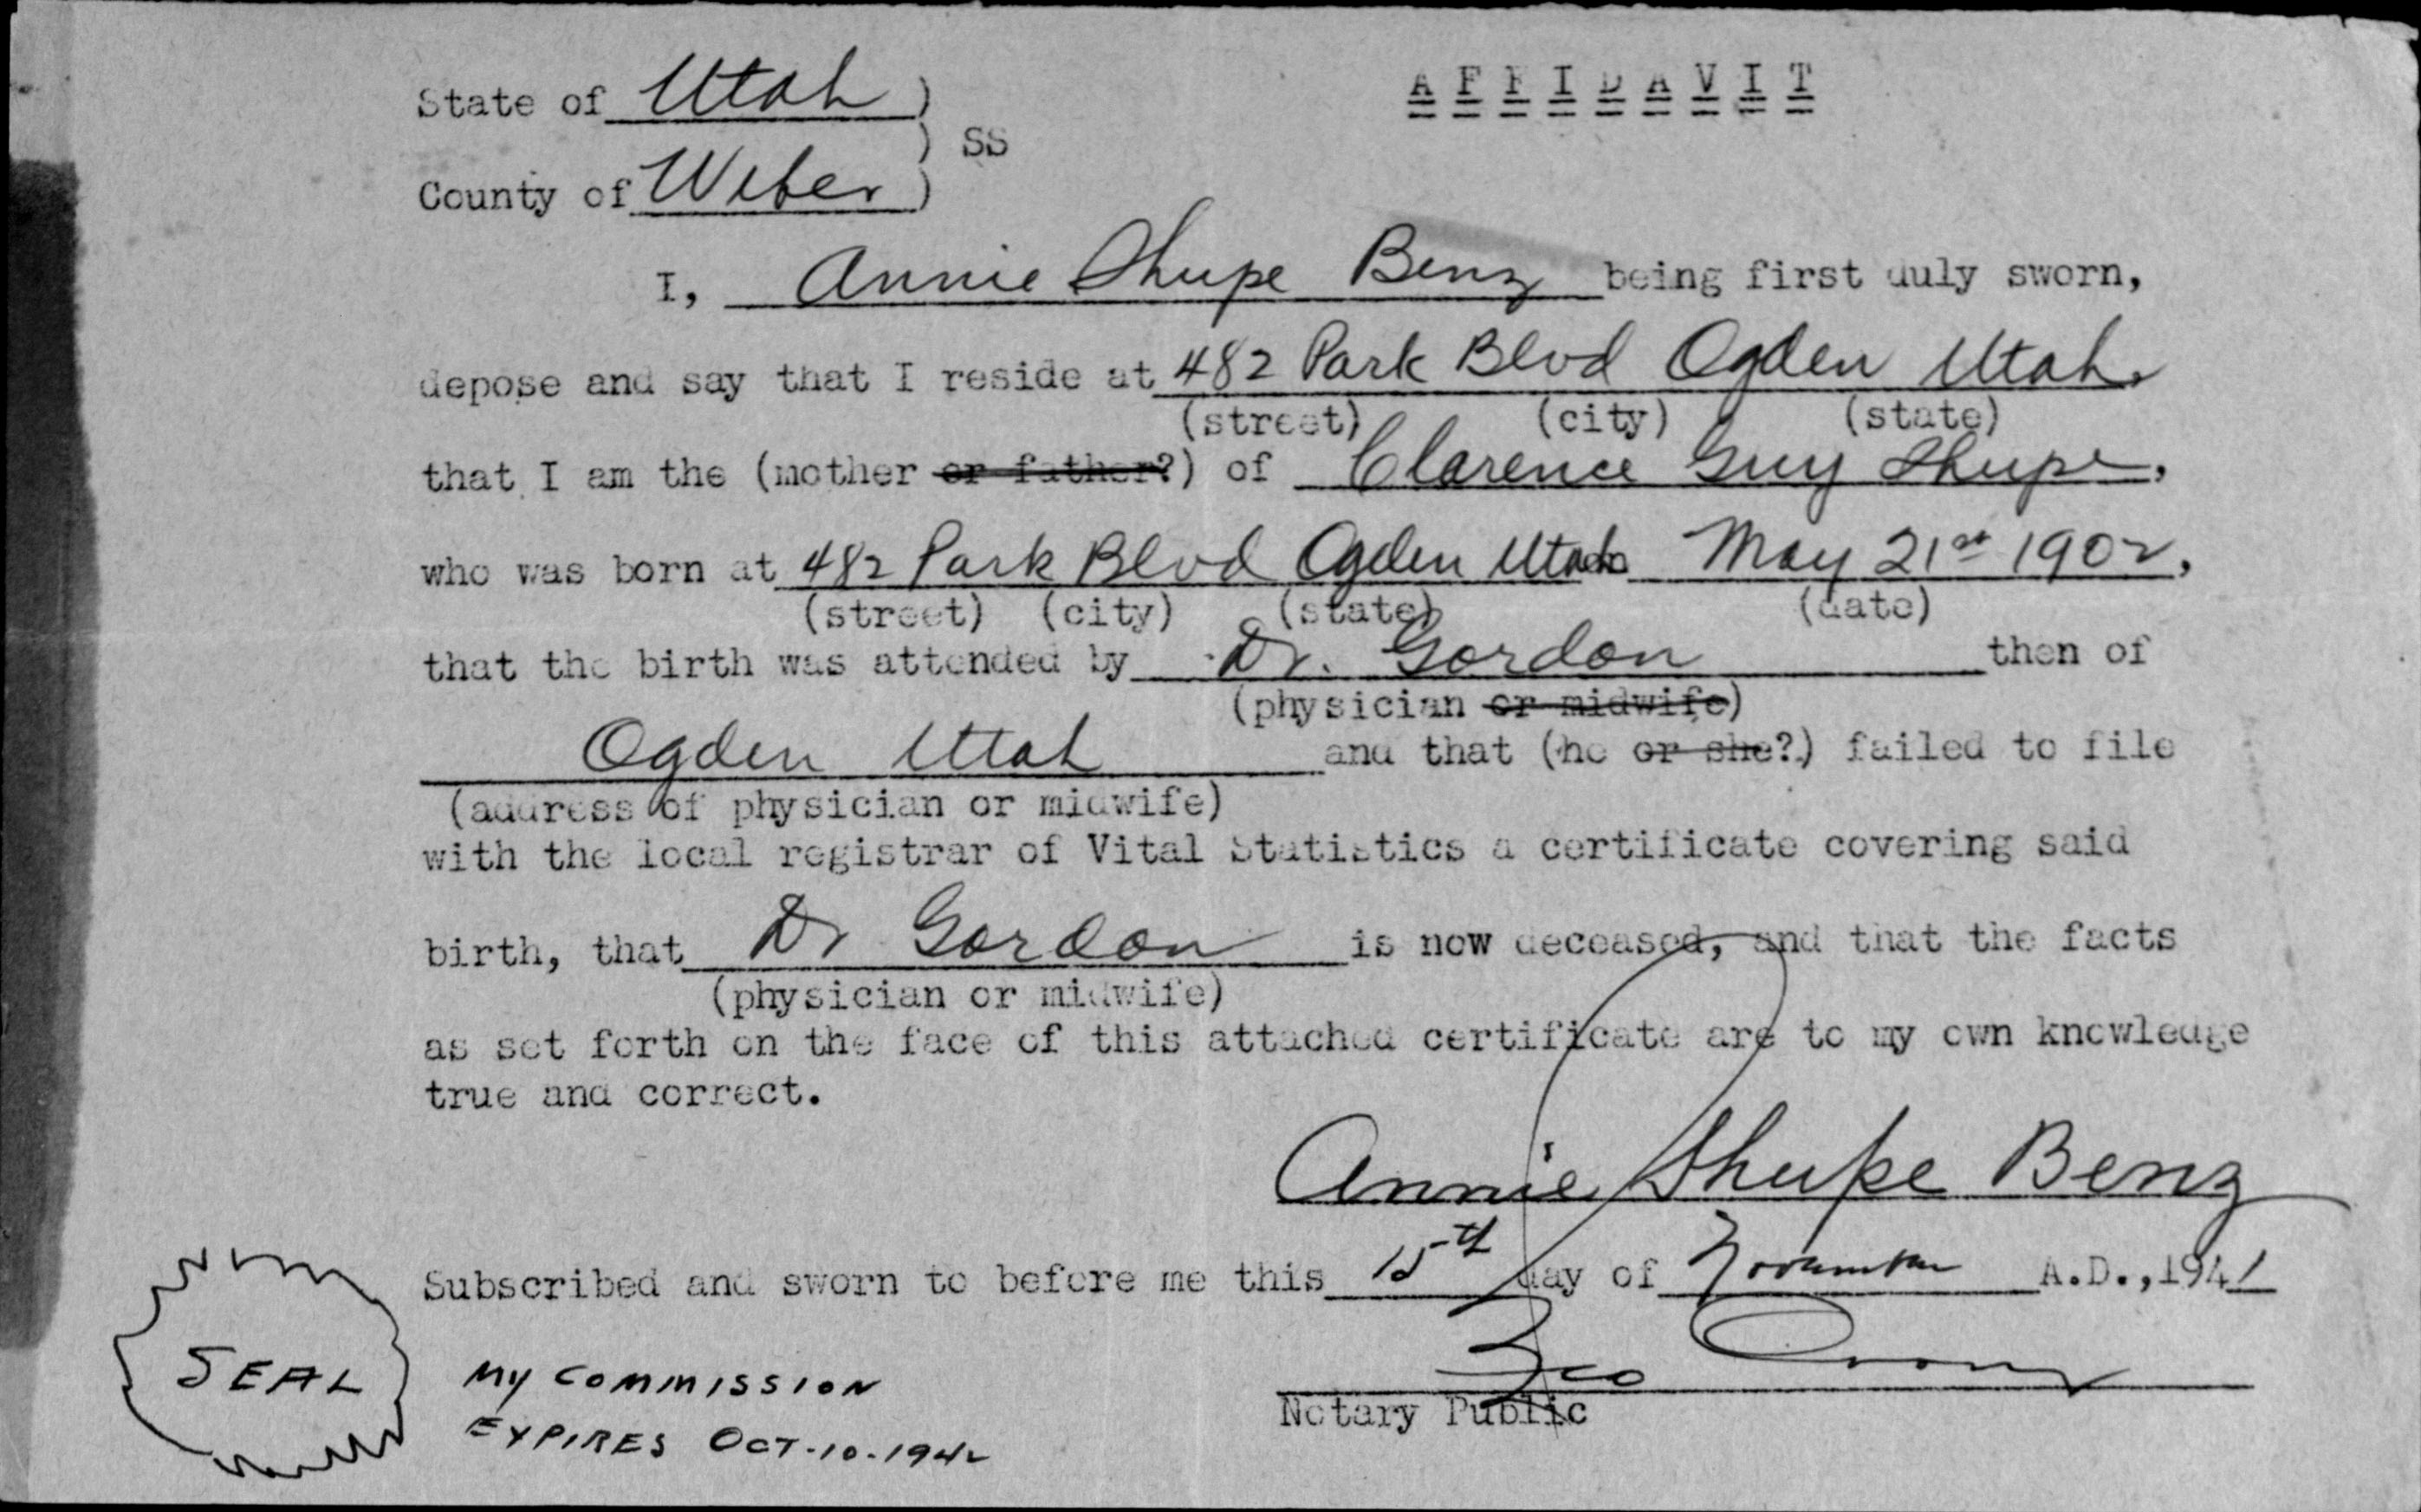 State of Utah )
AFFIDAVIT
) SS
County of Weber )
I, Annie Shupe Benz being first duly sworn,
depose and say that I reside at 482 Park Blvd Ogden Utah.
(street) (city) (state)
that I am the (mother or father?) of Clarence Guy Shupe,
who was born at 482 Park Blvd Ogden Utah May 21st 1902,
(street) (city) (state) (date)
that the birth was attended by Dr. Gordon then of
(physician or midwife)
Ogden Utah and that (he or she?) failed to file
(address of physician or midwife)
with the local registrar of Vital Statistics a certificate covering said
birth, that Dr Gordon is now deceased, and that the facts
(physician or midwife)
as set forth on the face of this attached certificate are to my own knowledge
true and correct.
Annie Shupe Benz
Subscribed and sworn to before me this 15th day of November A.D., 1941
Geo
SEAL
Notary Public
MY COMMISSION
EXPIRES OCT-10-1942